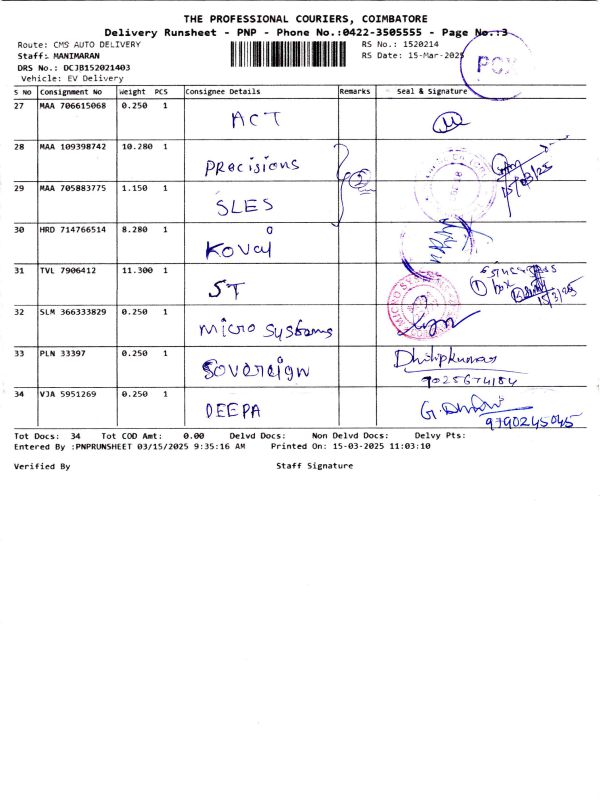 THE PROFESSIONAL COURIERS, COIMBATORE
Delivery Runsheet - PNP - Phone No.:0422-3505555 - Page No.:3
Route: CMS AUTO DELIVERY
RS No.: 1520214
Staff: MANIMARAN
RS Date: 15-Mar-2025
DRS No.: DCJB152021403
Vehicle: EV Delivery
POX
S NO Consignment No Weight PCS Consignee Details Remarks Seal & Signature
27 MAA 706615068 0.250 1 ACT
28 MAA 109398742 10.280 1 Precisions
15/03/25
29 MAA 705883775 1.150 1 SLES
2
30 HRD 714766514 8.280 1 Koval
31 TVL 7906412 11.300 1 ST
1 box
15/3/25
32 SLM 366333829 0.250 1 micro systems
MICRO SYSTEMS
33 PLN 33397 0.250 1 Sovereign Dhilipkumar
9025674184
34 VJA 5951269 0.250 1 DEEPA
9790245045
Tot Docs: 34 Tot COD Amt: 0.00 Delvd Docs: Non Delvd Docs: Delvy Pts:
Entered By :PNPRUNSHEET 03/15/2025 9:35:16 AM Printed On: 15-03-2025 11:03:10
Verified By Staff Signature